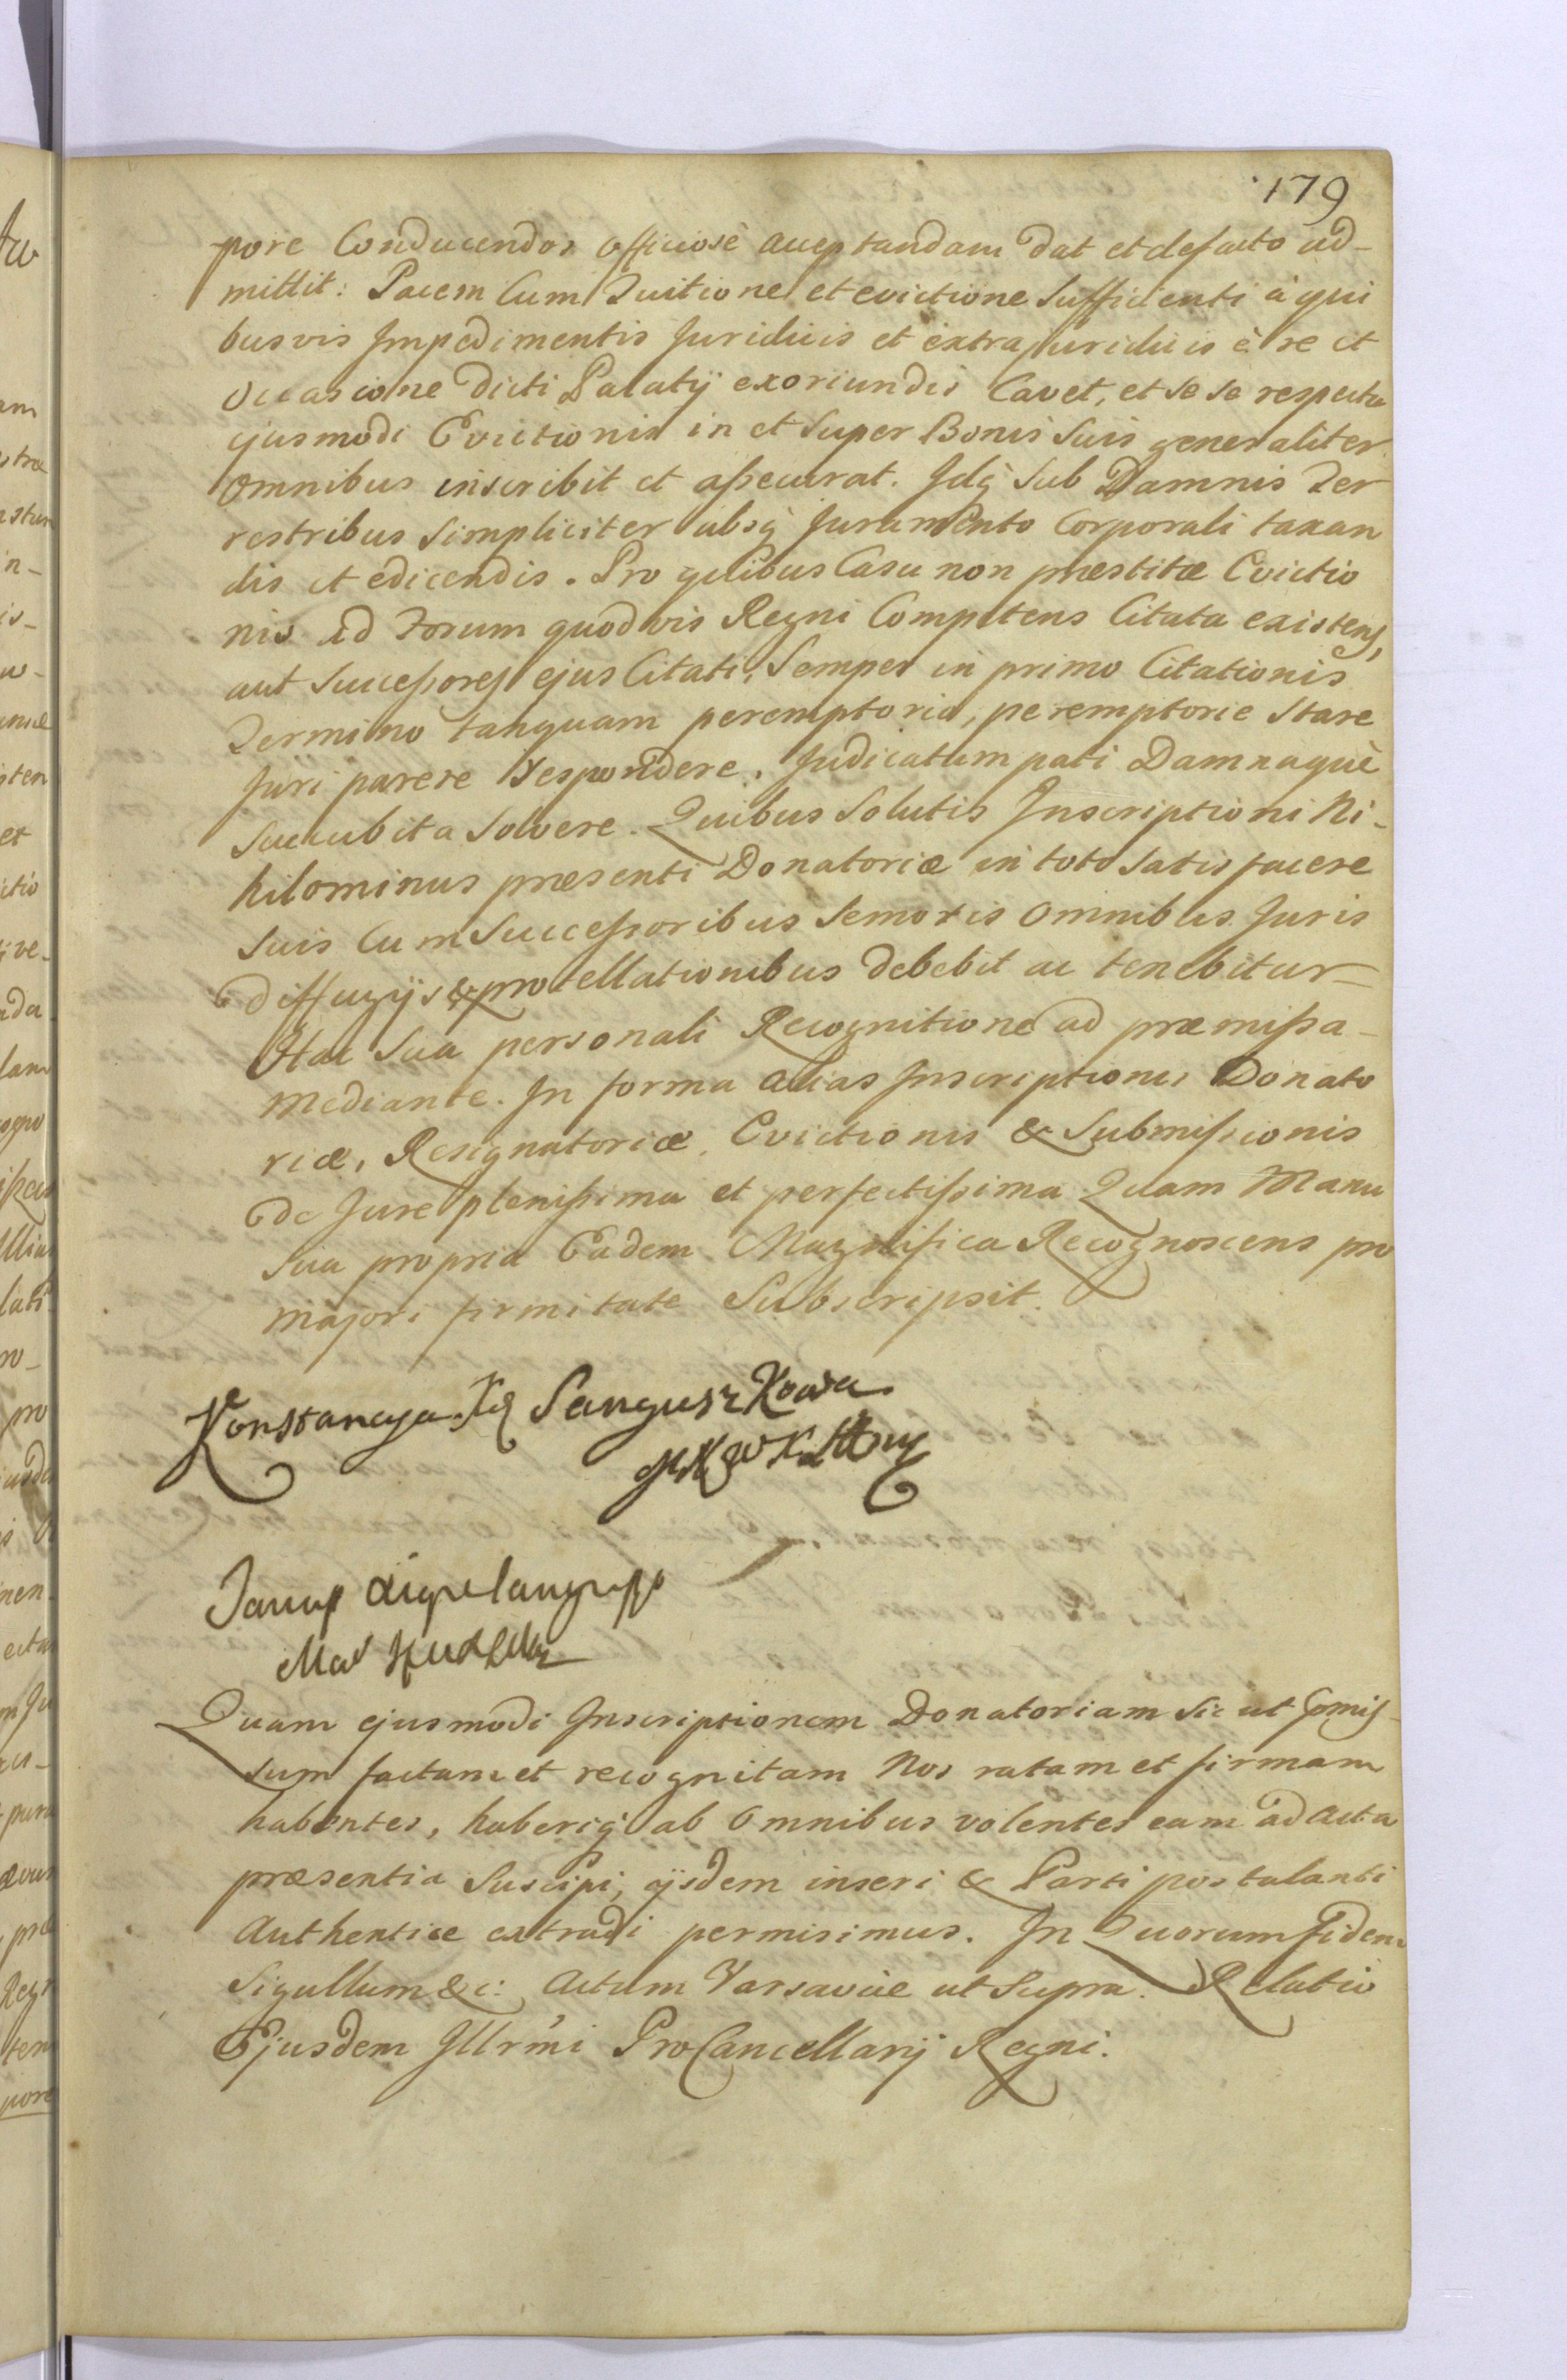 179
pore Conducendos officiosè acceptandam dat et defacto ad-
mittit: Pacem Cum Tuitione et evictione Sufficienti à qui
busvis Impedimentis Juridicis et extrajuridicis è re et
occasione dicti Palatij exoriundis Cavet, et se se respectu
ejusmodi Evictionis in et Super Bonis Suis generaliter
omnibus inscribit et aßecurat. Idq̷ Sub Damnis Ter
restribus Simpliciter absq̷ Juramento Corporali taxan
dis et edicendis. Pro quibus Casu non præstitæ Evictio
nis ad Forum quodvis Regni Competens Citata existens,
aut Succeßores ejus Citati, Semper in primo Citationis
Termino tanquam peremptorio, peremptorie Stare
Juri parere respondere, Judicatum pati Damnaquè
Succubita Solvere. Quibus Solutis Inscriptioni Ni-
hilominus præsenti Donatoriæ in toto Satisfacere
Suis Cum Succeßoribus Semotis omnibus Juris
diffugijs & protellationibus debebit ac tenebitur
Hac Sua personali Recognitione ad præmißa
mediante. In forma alias Inscriptionis Donato
riæ, Resignatoriæ, Evictionis & Submißionis
de Jure plenißima et perfectißima Quam Manu
Sua propria Eadem Magnifica Recognoscens pro
majori firmitate Subscripsit.
Konstancya Xq Sanguszkowa

Quam ejusmodi Inscriptionem Donatoriam Sic ut præmis-
sum factam et recognitam Nos ratam et firmam
habentes, haberiq̷ ab omnibus volentes eam ad Acta
præsentia Suscipi, ijsdem inseri & Parti postulanti
Authentice extradi permisimus. In Quorum Fidem
Sigillum &c: Actum Varsaviæ ut Supra. Relatio
Ejusdem Illrmi ProCancellarij Regni.